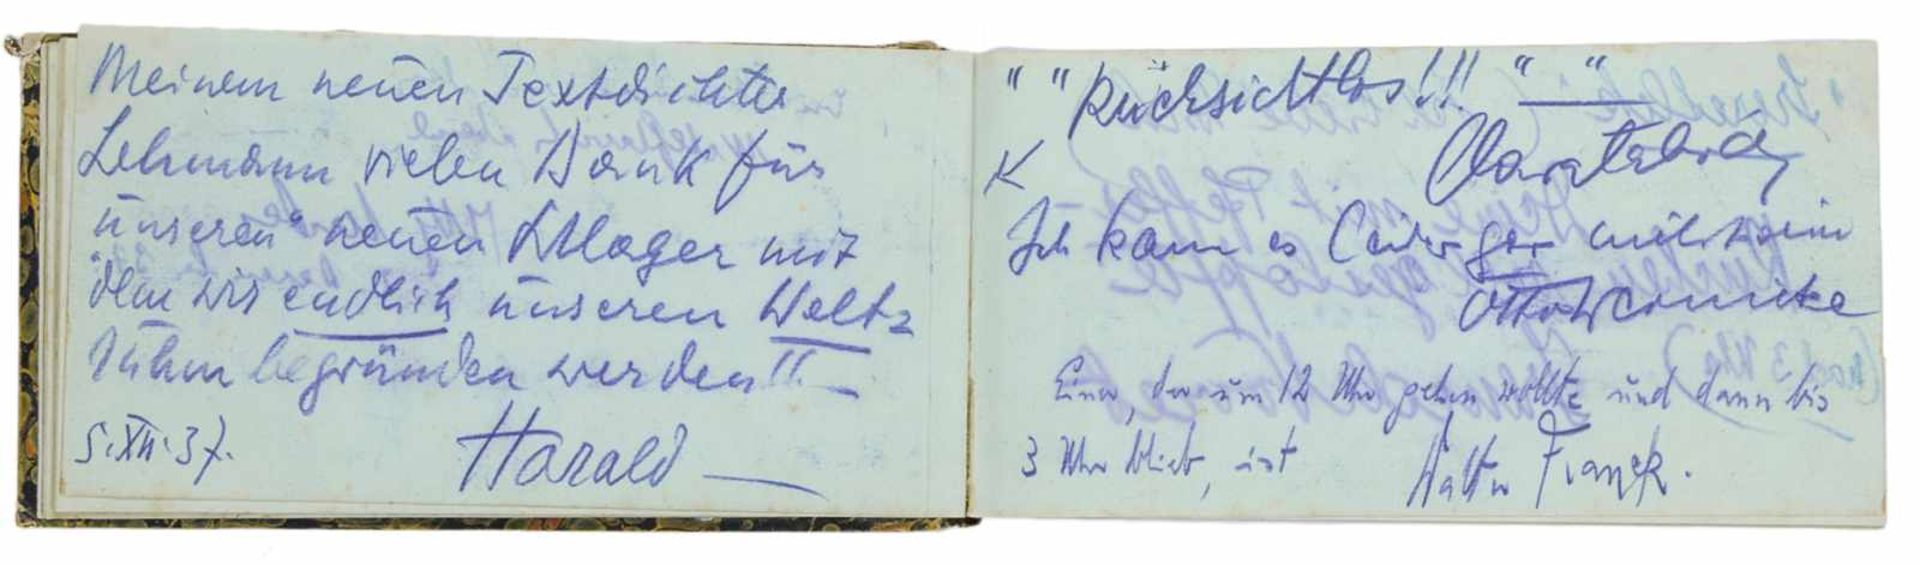 Meinem neuen Textdichter
Lehmann vielen Dank für
unseren "neuen Schlager mit
dem wir endlich unseren Welt=
ruhm begründen werden!!. —
5.XII.37. Harald —
" " Rücksichtlos!!! " "
Ich kann es leider gar nicht sein
Otto Wernicke
Einer, der um 12 Uhr gehen wollte und dann bis
3 Uhr blieb, ist Walter Franck.